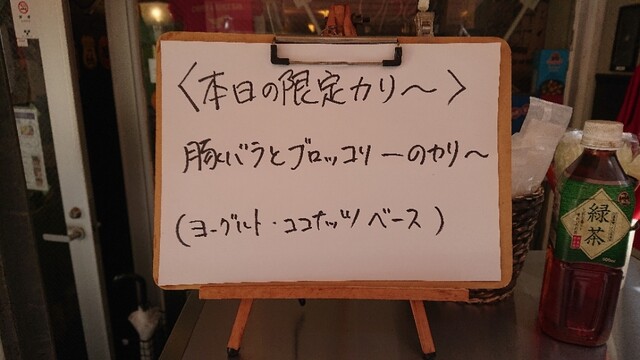 〈本日の限定カリ〜〉
豚バラとブロッコリーのカリ〜
(ヨーグルト・ココナッツベース)
緑茶